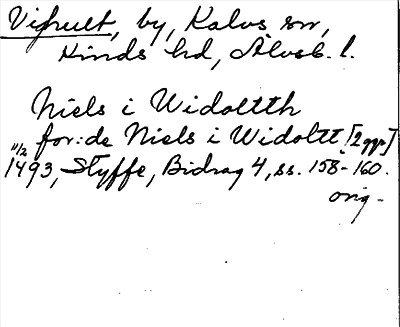 Vifhult, by, Kalvs sn,
Kinds hd, Älvsb. l.
Niels i Widoltth
for:de Niels i Widoltt [2 ggr]
11/2 1493, Styffe, Bidrag 4, ss. 158-160.
orig.